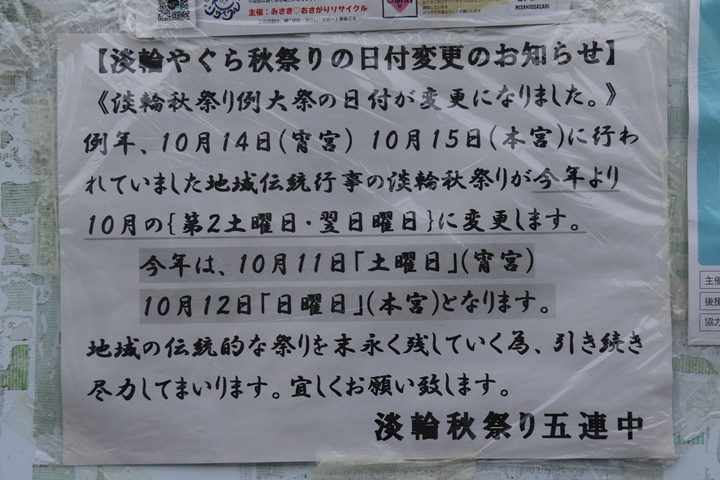 主催：みさき♡おさがりリサイクル
MISAKIOSAGARI
【淡輪やぐら秋祭りの日付変更のお知らせ】
《淡輪秋祭り例大祭の日付が変更になりました。》
例年、10月14日(宵宮) 10月15日(本宮)に行わ
れていました地域伝統行事の淡輪秋祭りが今年より
10月の{第2土曜日・翌日曜日}に変更します。
今年は、10月11日「土曜日」(宵宮)
10月12日「日曜日」(本宮)となります。
地域の伝統的な祭りを末永く残していく為、引き続き
尽力してまいります。宜しくお願い致します。
淡輪秋祭り五連中
主催
後援
協力